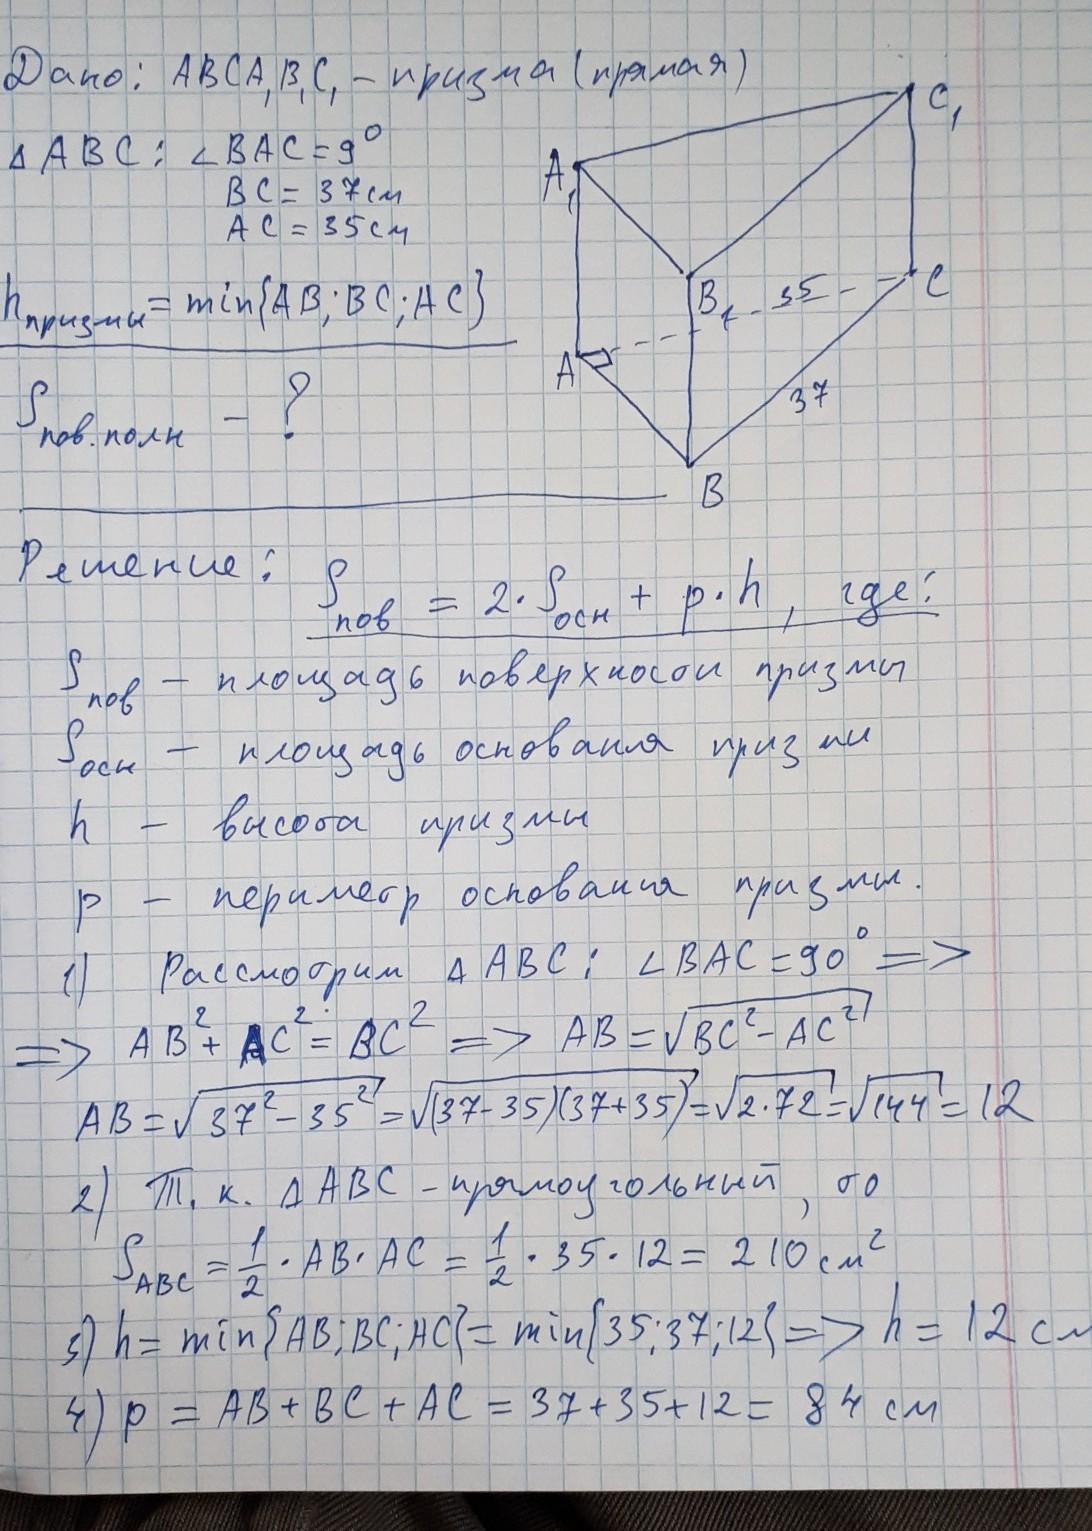 Дано: ABCA₁B₁C₁ – призма (прямая)
△ ABC: ∠BAC = 9°
BC = 37 см
AC = 35 см
hпризмы = min{AB; BC; AC}
Sпов. полн – ?
A₁
C₁
B₁
35
C
A
37
B
Решение:
Sпов = 2·Sосн + p·h, где:
Sпов – площадь поверхности призмы
Sосн – площадь основания призмы
h – высота призмы
p – периметр основания призмы.
1) Рассмотрим △ ABC: ∠BAC = 90° =>
=> AB² + AC² = BC² => AB = √(BC² – AC²)
AB = √(37² – 35²) = √((37-35)(37+35)) = √(2·72) = √144 = 12
2) Т. к. △ ABC – прямоугольный, то
SABC = 1/2 · AB · AC = 1/2 · 35 · 12 = 210 см²
3) h = min{AB; BC; AC} = min{35; 37; 12} => h = 12 см
4) p = AB + BC + AC = 37 + 35 + 12 = 84 см